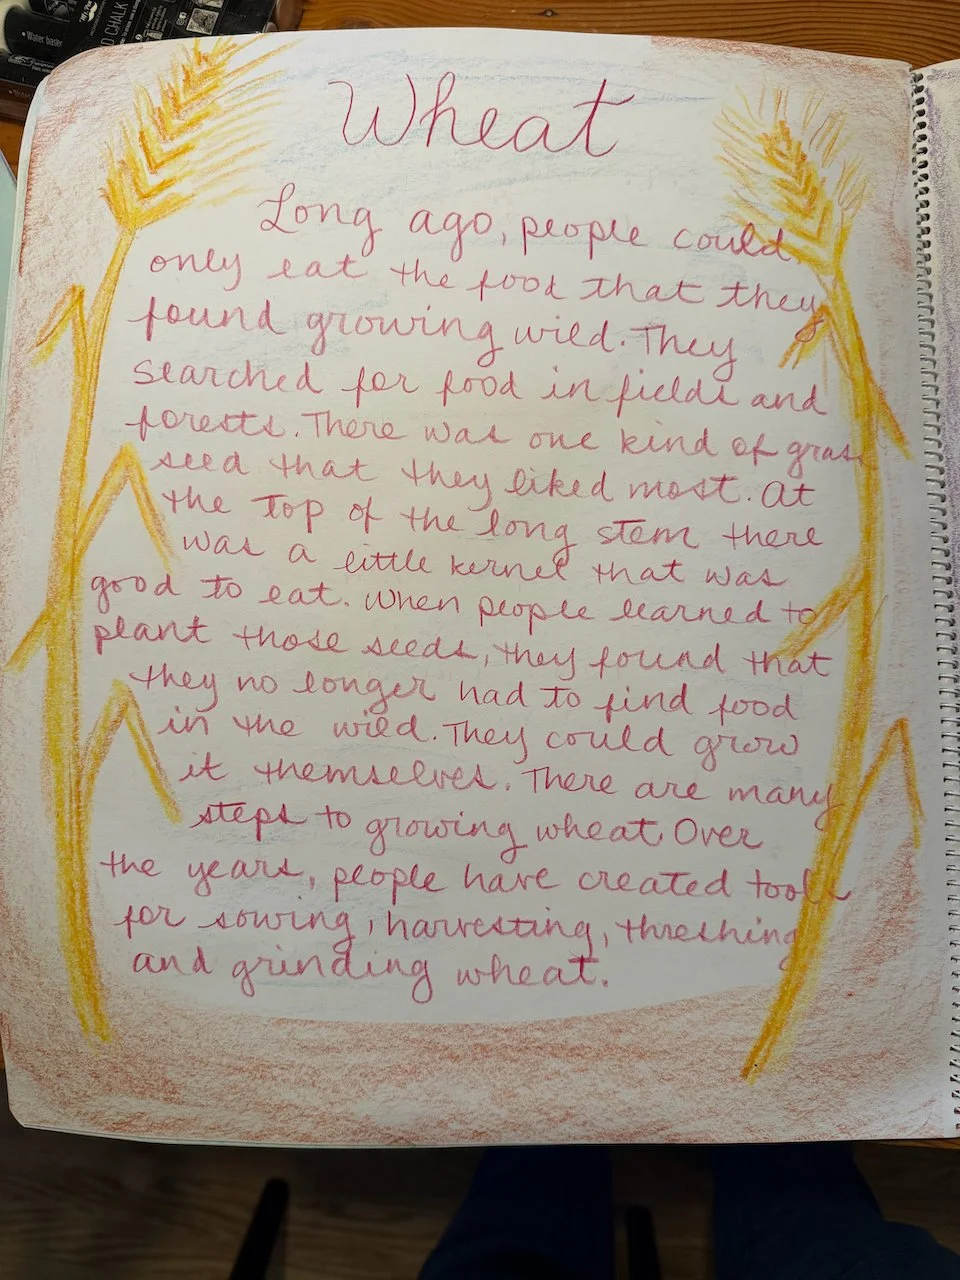 • Water based
D CHALK
Wheat
Long ago, people could
only eat the food that they
found growing wild. They
searched for food in fields and
forests. There was one kind of grass
seed that they liked most. At
the top of the long stem there
was a little kernel that was
good to eat. When people learned to
plant those seeds, they found that
they no longer had to find food
in the wild. They could grow
it themselves. There are many
steps to growing wheat. Over
the years, people have created tools
for sowing, harvesting, threshing
and grinding wheat.